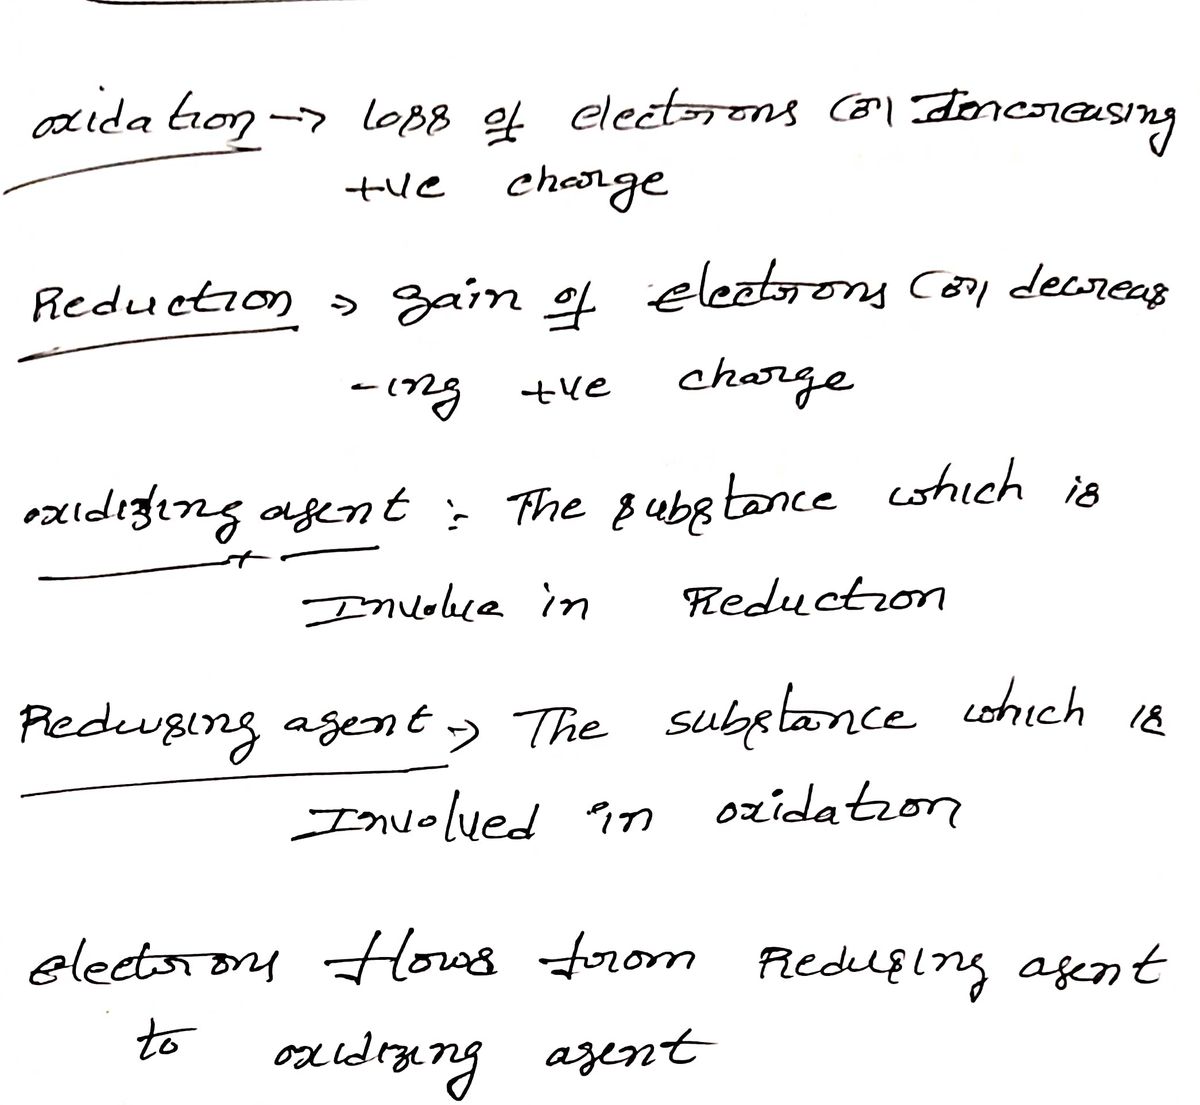 oxidation → loss of electrons (or) Increasing
+ve charge
Reduction → gain of electrons (or) decreas
-ing +ve charge
oxidizing agent :- The substance which is
Involve in Reduction
Redusing agent → The substance which is
Involved in oxidation
electrons flows from Redusing agent
to oxidizing agent